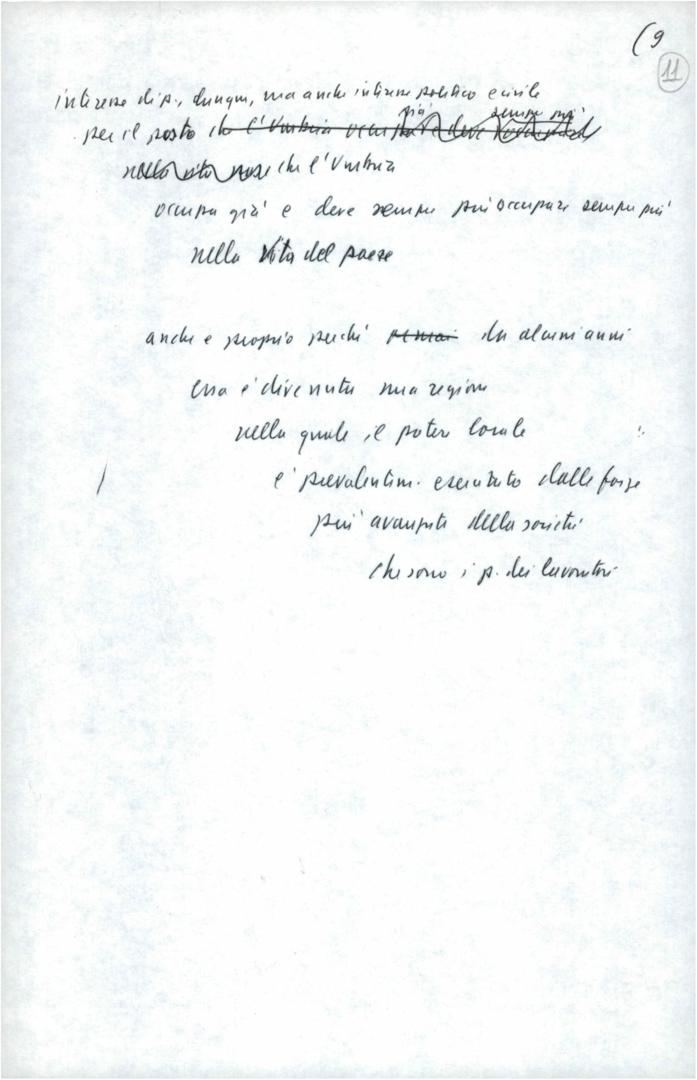 (9
11
interesse di p., dunque, ma anche interesse politico e civile
già sempre più
per il posto che l'Umbria occupa e deve
nella vita che l'Umbria
occupa già e deve sempre più occupare sempre più
nella vita del paese
anche e proprio perché da alcuni anni
essa è divenuta una regione
nella quale il potere locale
è prevalentem. esercitato dalle forze
più avanzate della società
che sono i p. dei lavoratori